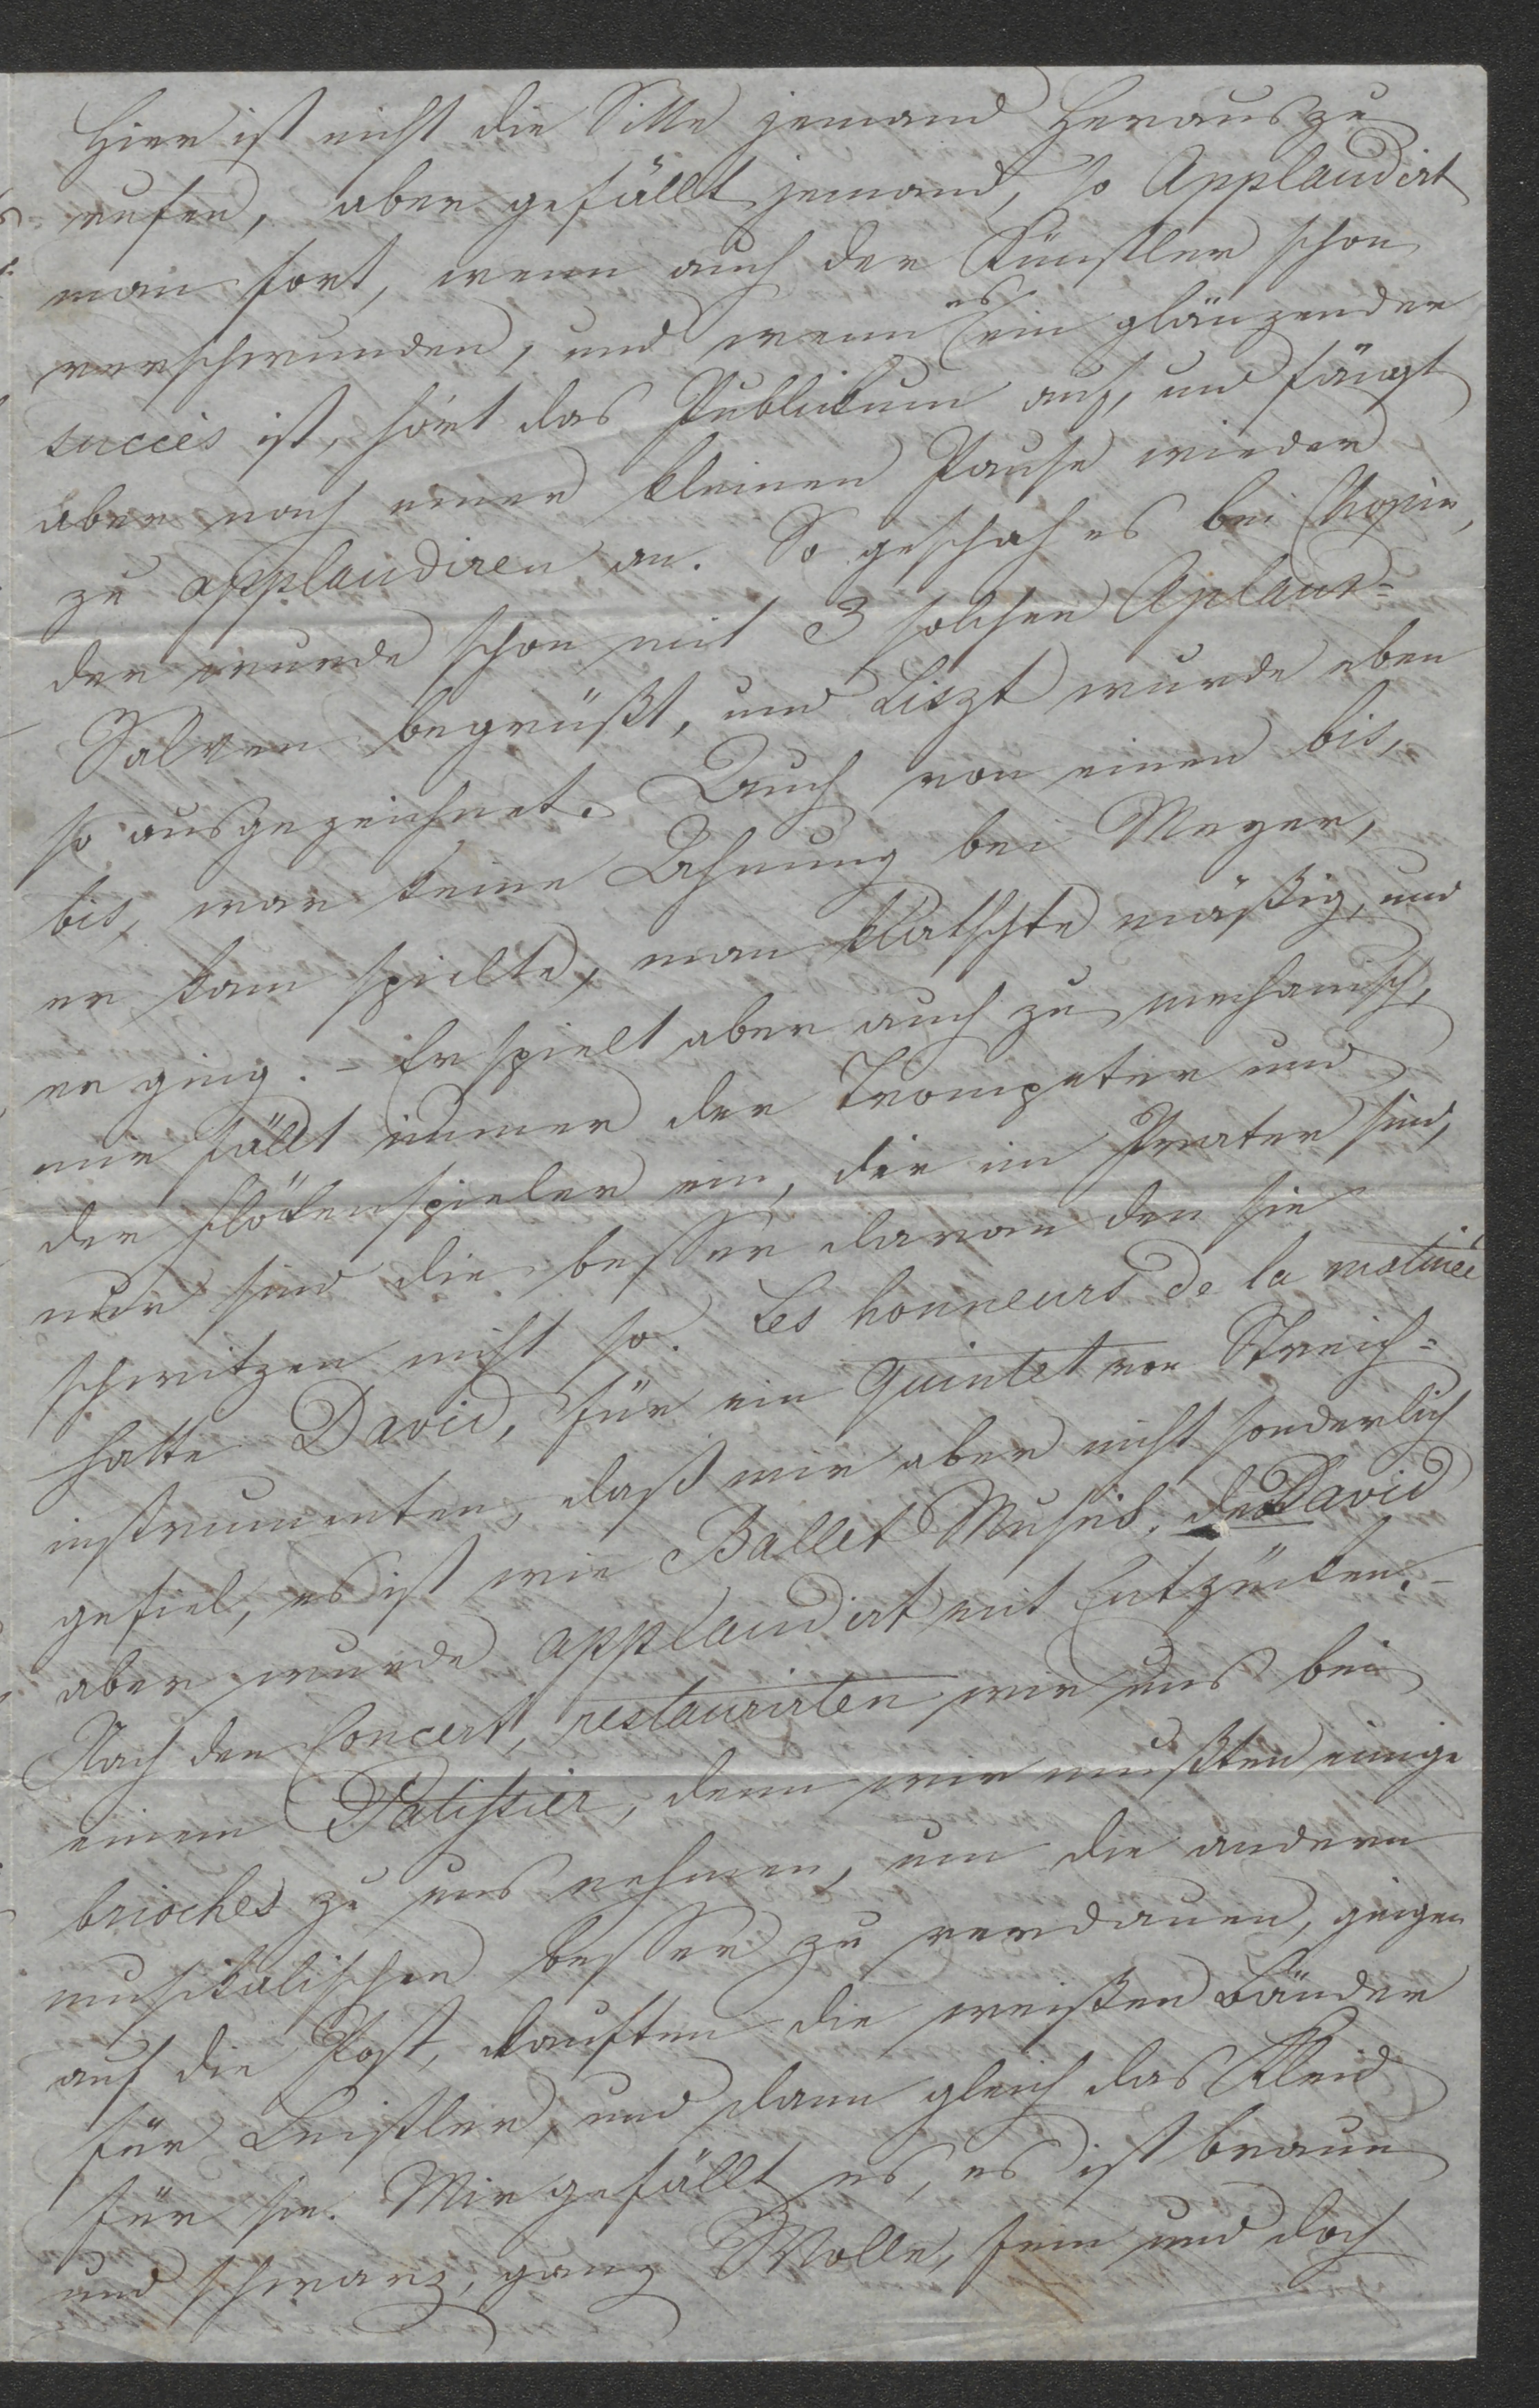 Hier ist nicht die Sitte jemand herauszu
rufen, aber gefällt jemand, so Applaudirt
man fort, wenn auch der Künstler schon
verschwunden, und wenn es ein glänzender
succès ist, hört das Publikum auf, und fängt
aber nach einer kleinen Pause wieder
zu applaudiren an. So geschah es bei Chopin,
der wurde schon mit 3 solchen Aplaus=
Salven begrüßt, und Liszt wurde eben
so ausgezeichnet. Auch von einen bis,
bis, war keine Ahnung bei Meyer,
er kam spielte, man klatschte mäßig, und
er ging. – Er spielt aber auch zu mechanisch,
mir fällt immer der Trompeter und
der Flötenspieler ein, die im Prater sind,
nur sind die besser daran den sie
schwitzen nicht so. Les honneurs de la matinée
hatte David, für ein Quintet von Streich=
instrumenten, daß mir aber nicht sonderlich
gefiel, es ist wie Ballet Musik, der David
aber wurde applaudirt mit Entzücken. –
Nach den Concert, restaurirten wir uns bei
einem Patissier, denn wir mußten einige
brioches zu uns nehmen, um die andern
musikalischen besser zu verdauen, gingen
auf die Post, kauften die weißen Bänder
für Leistler, und dann gleich das Kleid
für sie. Mir gefällt es, es ist braun
und schwarz, ganz Wolle, fein und doch